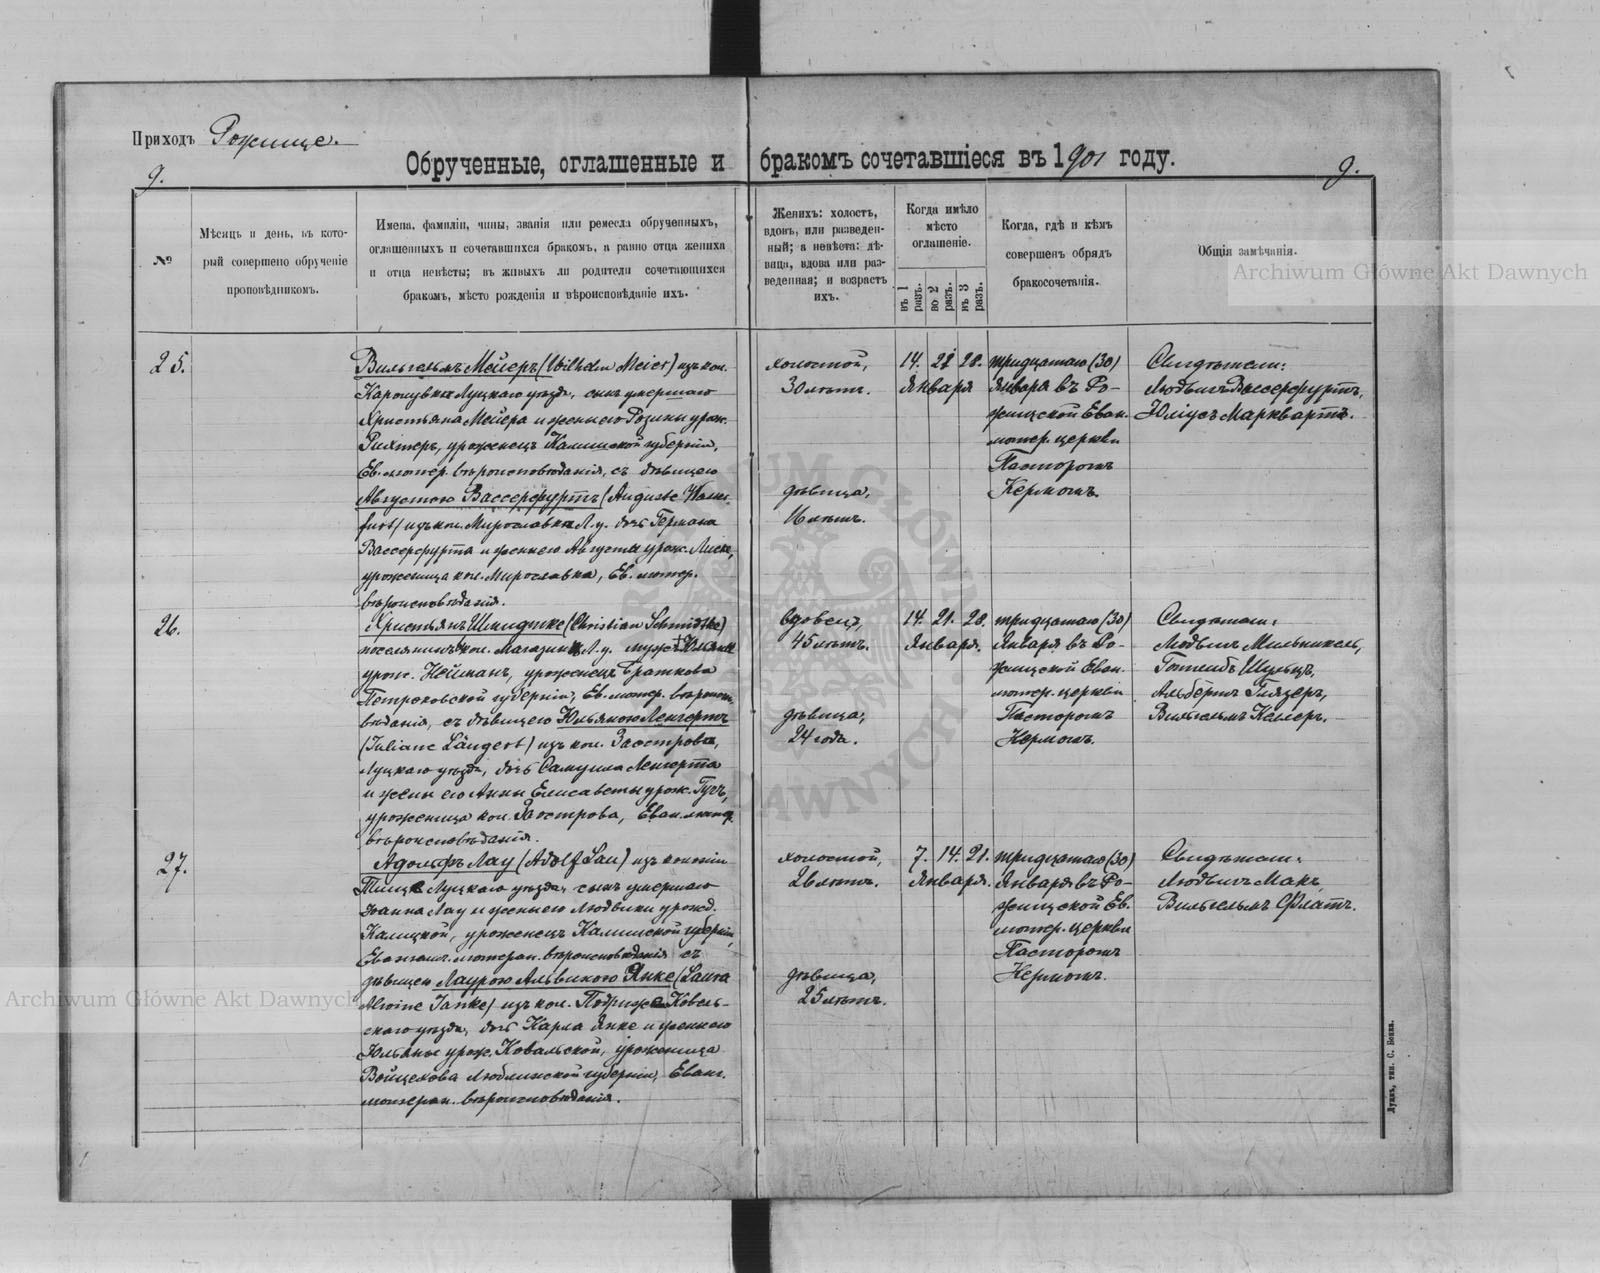 Приходъ Рожище.
Обрученные, оглашенные и бракомъ сочетавшіеся въ 1901 году.
9.
9.
№
Мѣсяцъ и день, въ кото-
рый совершено обрученіе
проповѣдникомъ.
Имена, фамиліи, чины, званія или ремесла обрученныхъ,
оглашенныхъ и сочетавшихся бракомъ, а равно отца жениха
и отца невѣсты; въ живыхъ ли родители сочетающихся
бракомъ, мѣсто рожденія и вѣроисповѣданіе ихъ.
Женихъ: холостъ,
вдовъ, или разведен-
ный; а невѣста: дѣ-
вица, вдова или раз-
веденная; и возрастъ
ихъ.
Когда имѣло
мѣсто
оглашеніе.
въ 1 разъ.
во 2 разъ.
въ 3 разъ.
Когда, гдѣ и кѣмъ
совершенъ обрядъ
бракосочетанія.
Общія замѣчанія.
Archiwum Główne Akt Dawnych
25.
Вильгельмъ Мейеръ (Wilhelm Meier) изъ кол.
Луцкаго уѣзда, сынъ умершаго
Христьяна Мейера и жены его Розины урож.
Рихтеръ, уроженецъ Калишской губерніи,
Ев. лютер. вѣроисповѣданія, съ дѣвицею
Августою Вассерфуртъ (Auguste Wasser-
furt) изъ кол. Мирославка Л. у. дочь Германа
Вассерфурта и жены его Августы урож. Лиске,
уроженица кол. Мирославка, Ев. лютер.
вѣроисповѣданія.
холостой,
30 лѣтъ.
дѣвица,
16 лѣтъ.
14. 21 28.
Января
тридцатаго (30)
Января въ Ро-
жищской Еван.
лютер. церкви
Пасторомъ
Кермомъ.
Свидѣтели:
Людвигъ Вассерфуртъ,
Юліусъ Марквартъ.
26.
Христьянъ Шмидтке (Christian Schmidtke)
поселянинъ кол. Магазинка Л. у. мужъ + Юліанны
урож. Нейманъ, уроженецъ Браткова
Петроковской губерніи, Ев. лютер. вѣроиспо-
вѣданія, съ дѣвицею Юльяною Ленгертъ
(Juliane Längert) изъ кол. Заострова,
Луцкаго уѣзда, дочь Самуила Ленгерта
и жены его Анны Елисаветы урож. Гучъ,
уроженица кол. Заострова, Еван. лютер.
вѣроисповѣданія.
вдовецъ,
45 лѣтъ.
дѣвица,
24 года.
14. 21. 28.
Января.
тридцатаго (30)
Января въ Ро-
жищской Еван.
лютер. церкви
Пасторомъ
Кермомъ.
Свидѣтели:
Людвигъ Мильникель,
Готлибъ Шульцъ,
Альбертъ Глязеръ,
Вильгельмъ Келлеръ.
27.
Адольфъ Лау (Adolf Lau) изъ колоніи
Луцкаго уѣзда, сынъ умершаго
Іоанна Лау и жены его Людвики урожд.
Калицкой, уроженецъ Калишской губерніи,
Евангел. лютеран. вѣроисповѣданія съ
дѣвицею Лаурою Альвиною Янке (Laura
Alwine Janke) изъ кол. Подрижа Ковель-
скаго уѣзда, дочь Карла Янке и жены его
Юльяны урож. Ковальской, уроженица
Войцехова Люблинской губерніи, Еванг.
лютеран. вѣроисповѣданія.
холостой,
26 лѣтъ.
дѣвица,
25 лѣтъ.
7. 14. 21.
Января.
тридцатаго (30)
Января въ Ро-
жищской Ев.
лютер. церкви
Пасторомъ
Кермомъ.
Свидѣтели:
Людвигъ Макъ,
Вильгельмъ Флатъ.
Archiwum Główne Akt Dawnych
ARCHIWUM GŁÓWNE AKT DAWNYCH
Луцкъ, тип. С. Бокка.